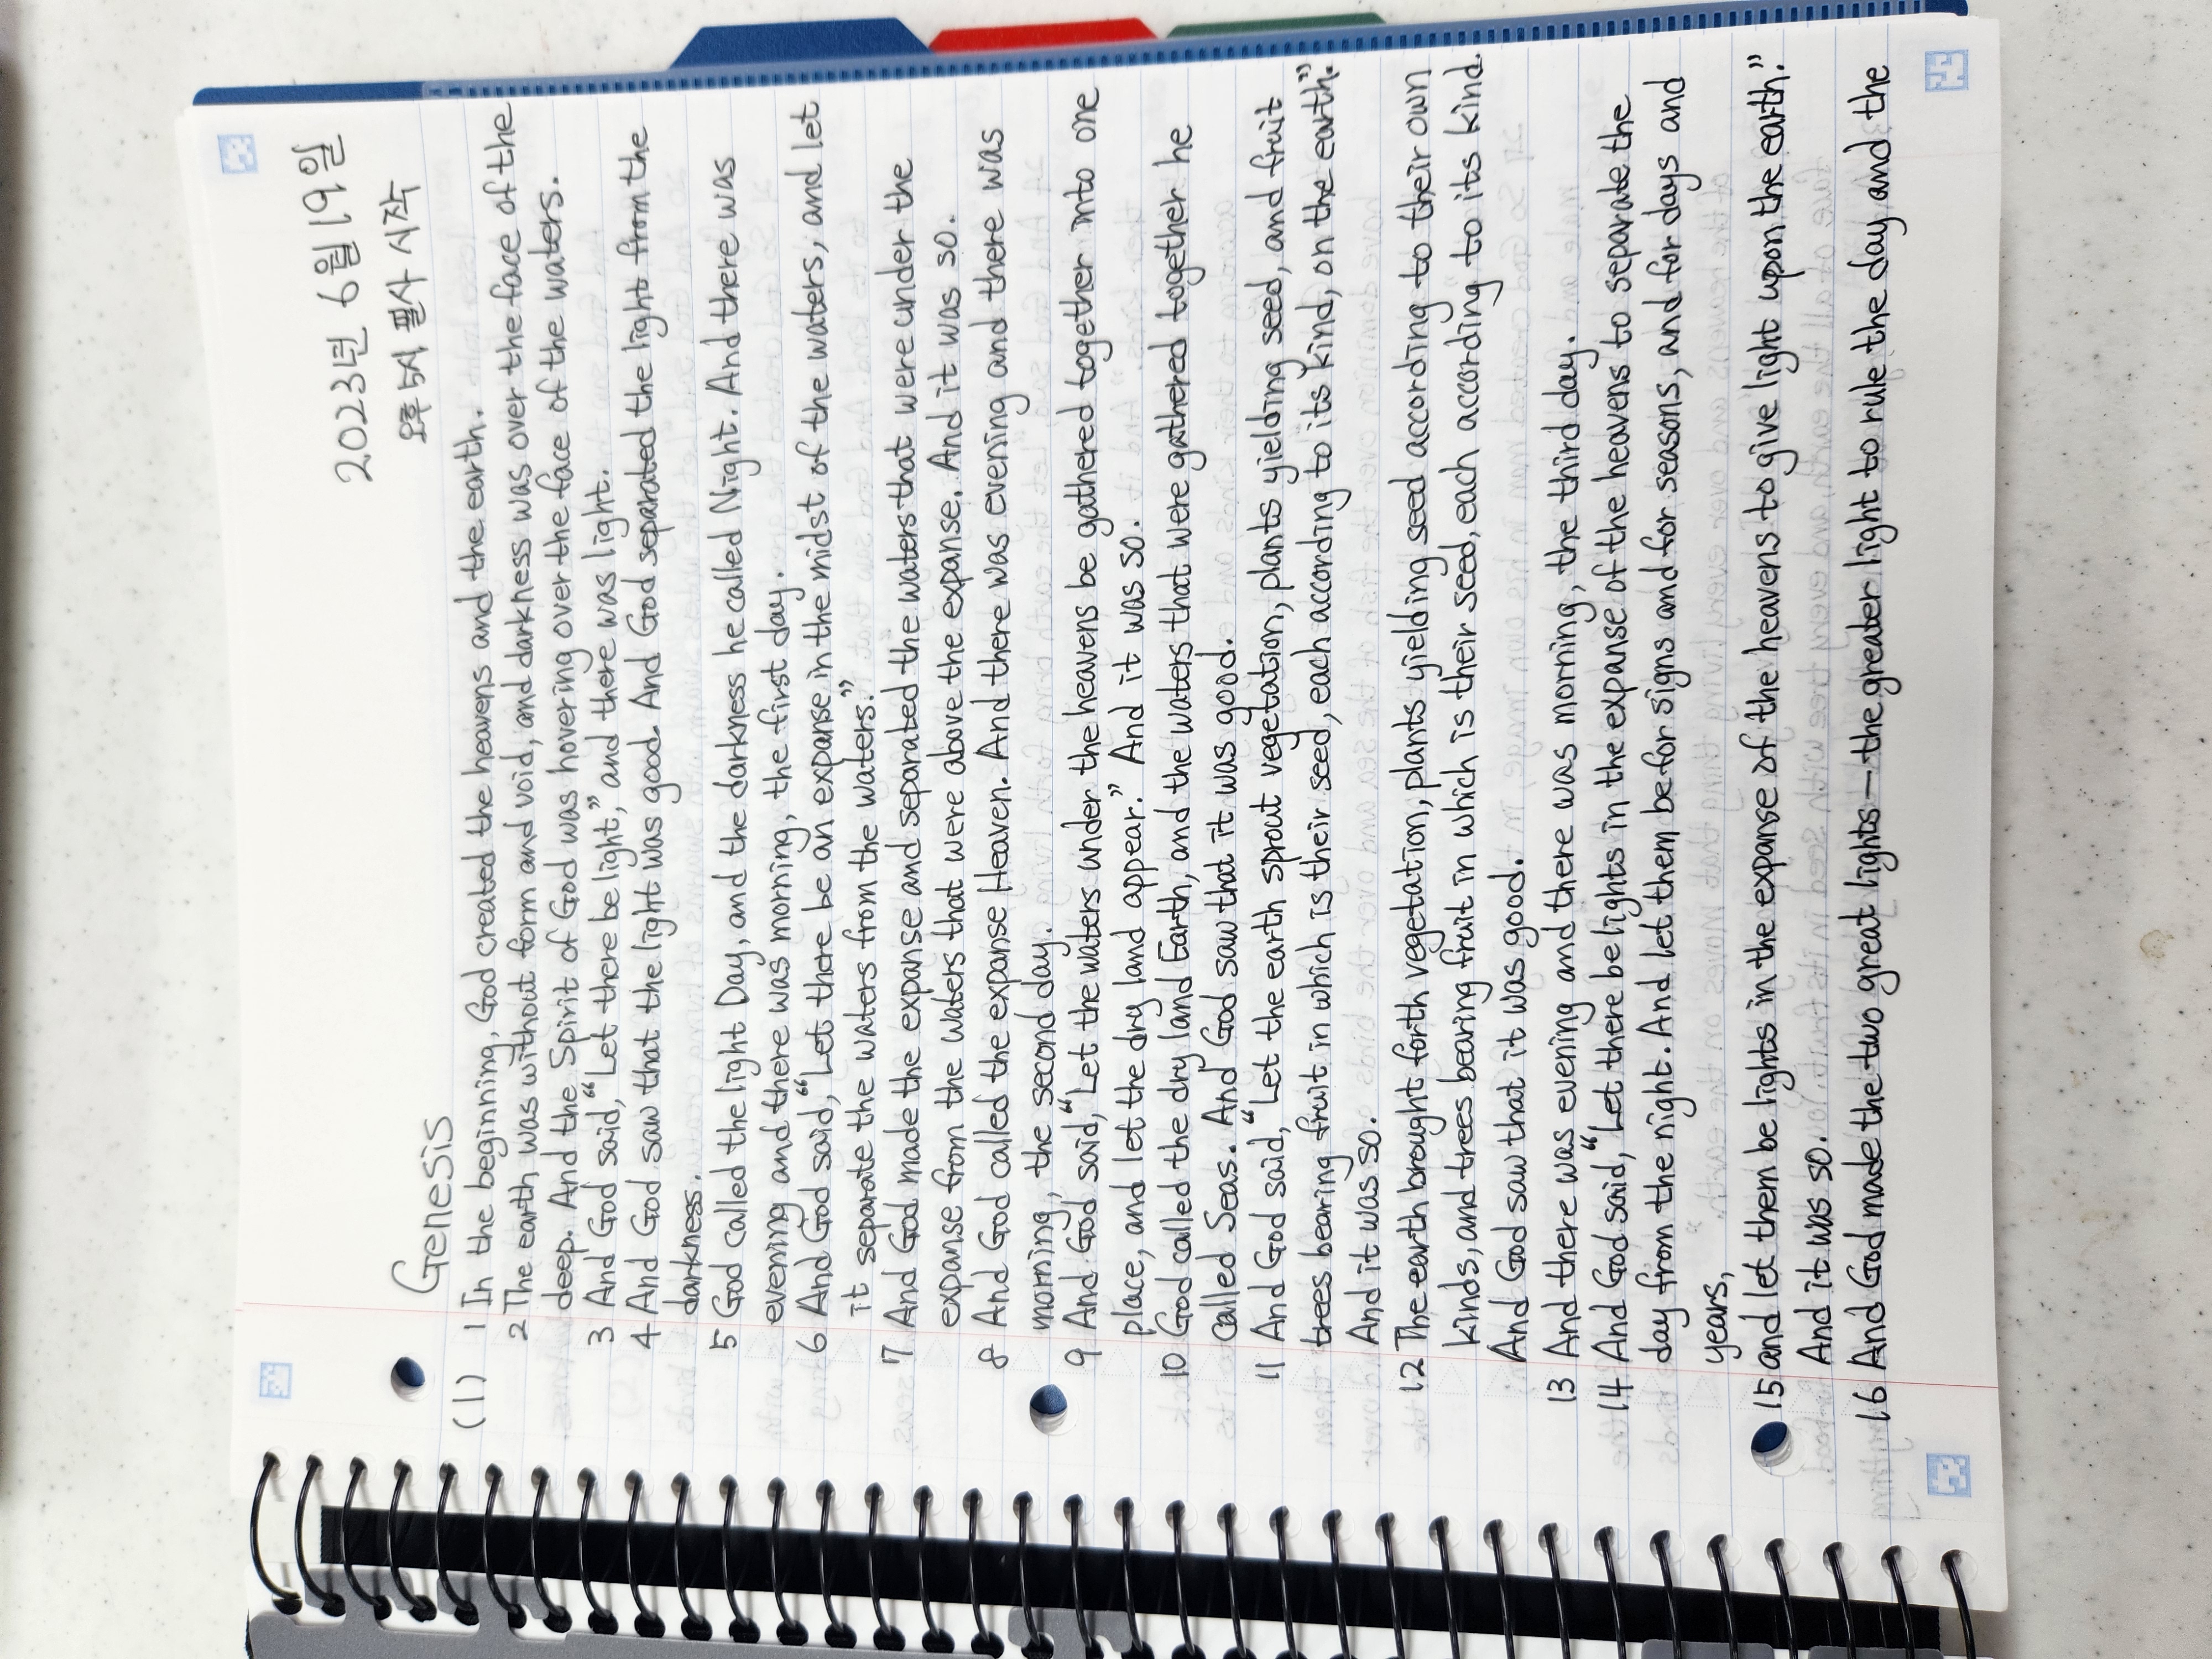 2023년 6월 19일
오후 5시 필사 시작
Genesis
(1) 1 In the beginning, God created the heavens and the earth.
2 The earth was without form and void, and darkness was over the face of the
deep. And the Spirit of God was hovering over the face of the waters.
3 And God said, “Let there be light,” and there was light.
4 And God saw that the light was good. And God separated the light from the
darkness.
5 God called the light Day, and the darkness he called Night. And there was
evening and there was morning, the first day.
6 And God said, “Let there be an expanse in the midst of the waters, and let
it separate the waters from the waters.”
7 And God made the expanse and separated the waters that were under the
expanse from the waters that were above the expanse. And it was so.
8 And God called the expanse Heaven. And there was evening and there was
morning, the second day.
9 And God said, “Let the waters under the heavens be gathered together into one
place, and let the dry land appear.” And it was so.
10 God called the dry land Earth, and the waters that were gathered together he
called Seas. And God saw that it was good.
11 And God said, “Let the earth sprout vegetation, plants yielding seed, and fruit
trees bearing fruit in which is their seed, each according to its kind, on the earth.”
And it was so.
12 The earth brought forth vegetation, plants yielding seed according to their own
kinds, and trees bearing fruit in which is their seed, each according to its kind.
And God saw that it was good.
13 And there was evening and there was morning, the third day.
14 And God said, “Let there be lights in the expanse of the heavens to separate the
day from the night. And let them be for signs and for seasons, and for days and
years,
15 and let them be lights in the expanse of the heavens to give light upon the earth.”
And it was so.
16 And God made the two great lights—the greater light to rule the day and the